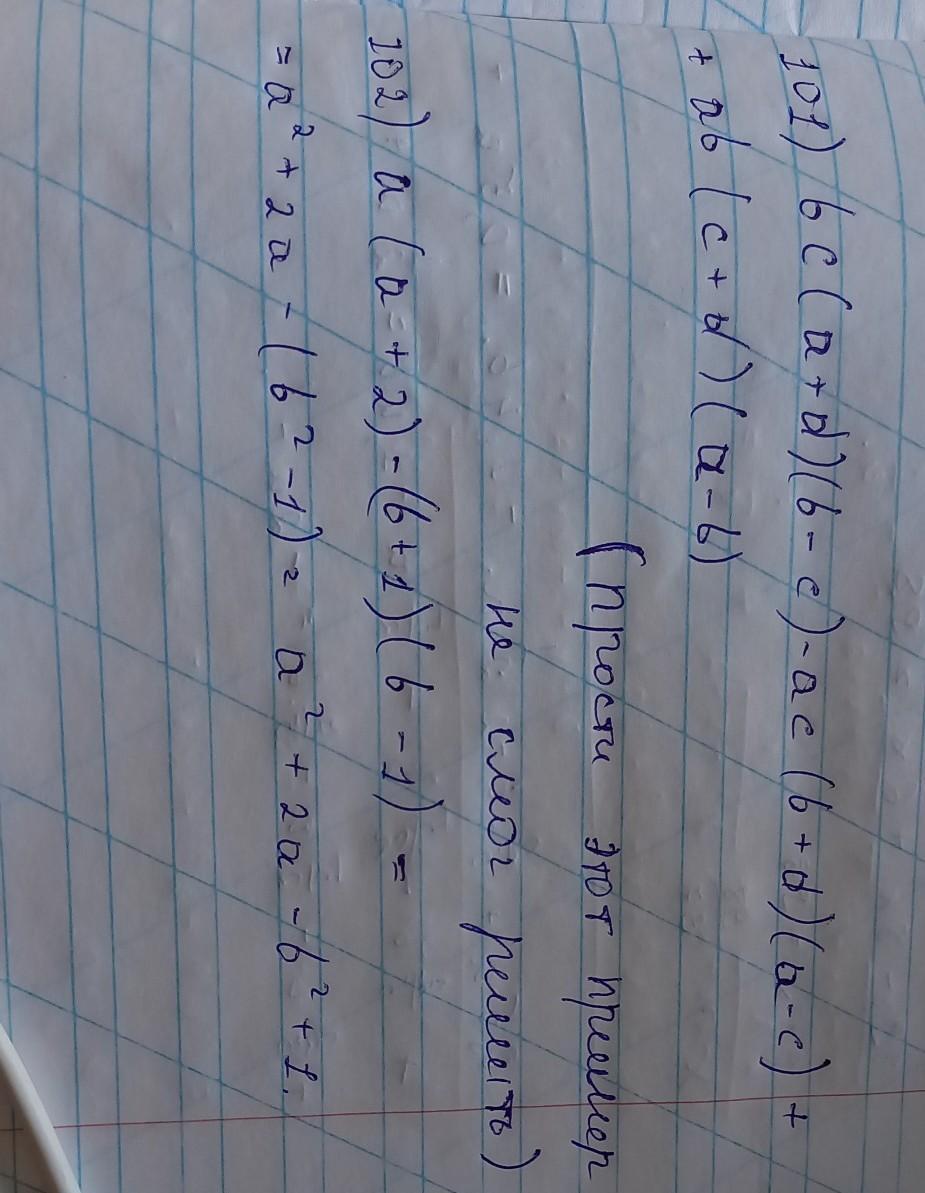 101) bc(a+d)(b-c)-ac(b+d)(a-c)+
+ab(c+d)(a-b)
(прости этот пример
не смог решить)
102) a(a+2)-(b+1)(b-1)=
=a²+2a-(b²-1)=a²+2a-b²+1.